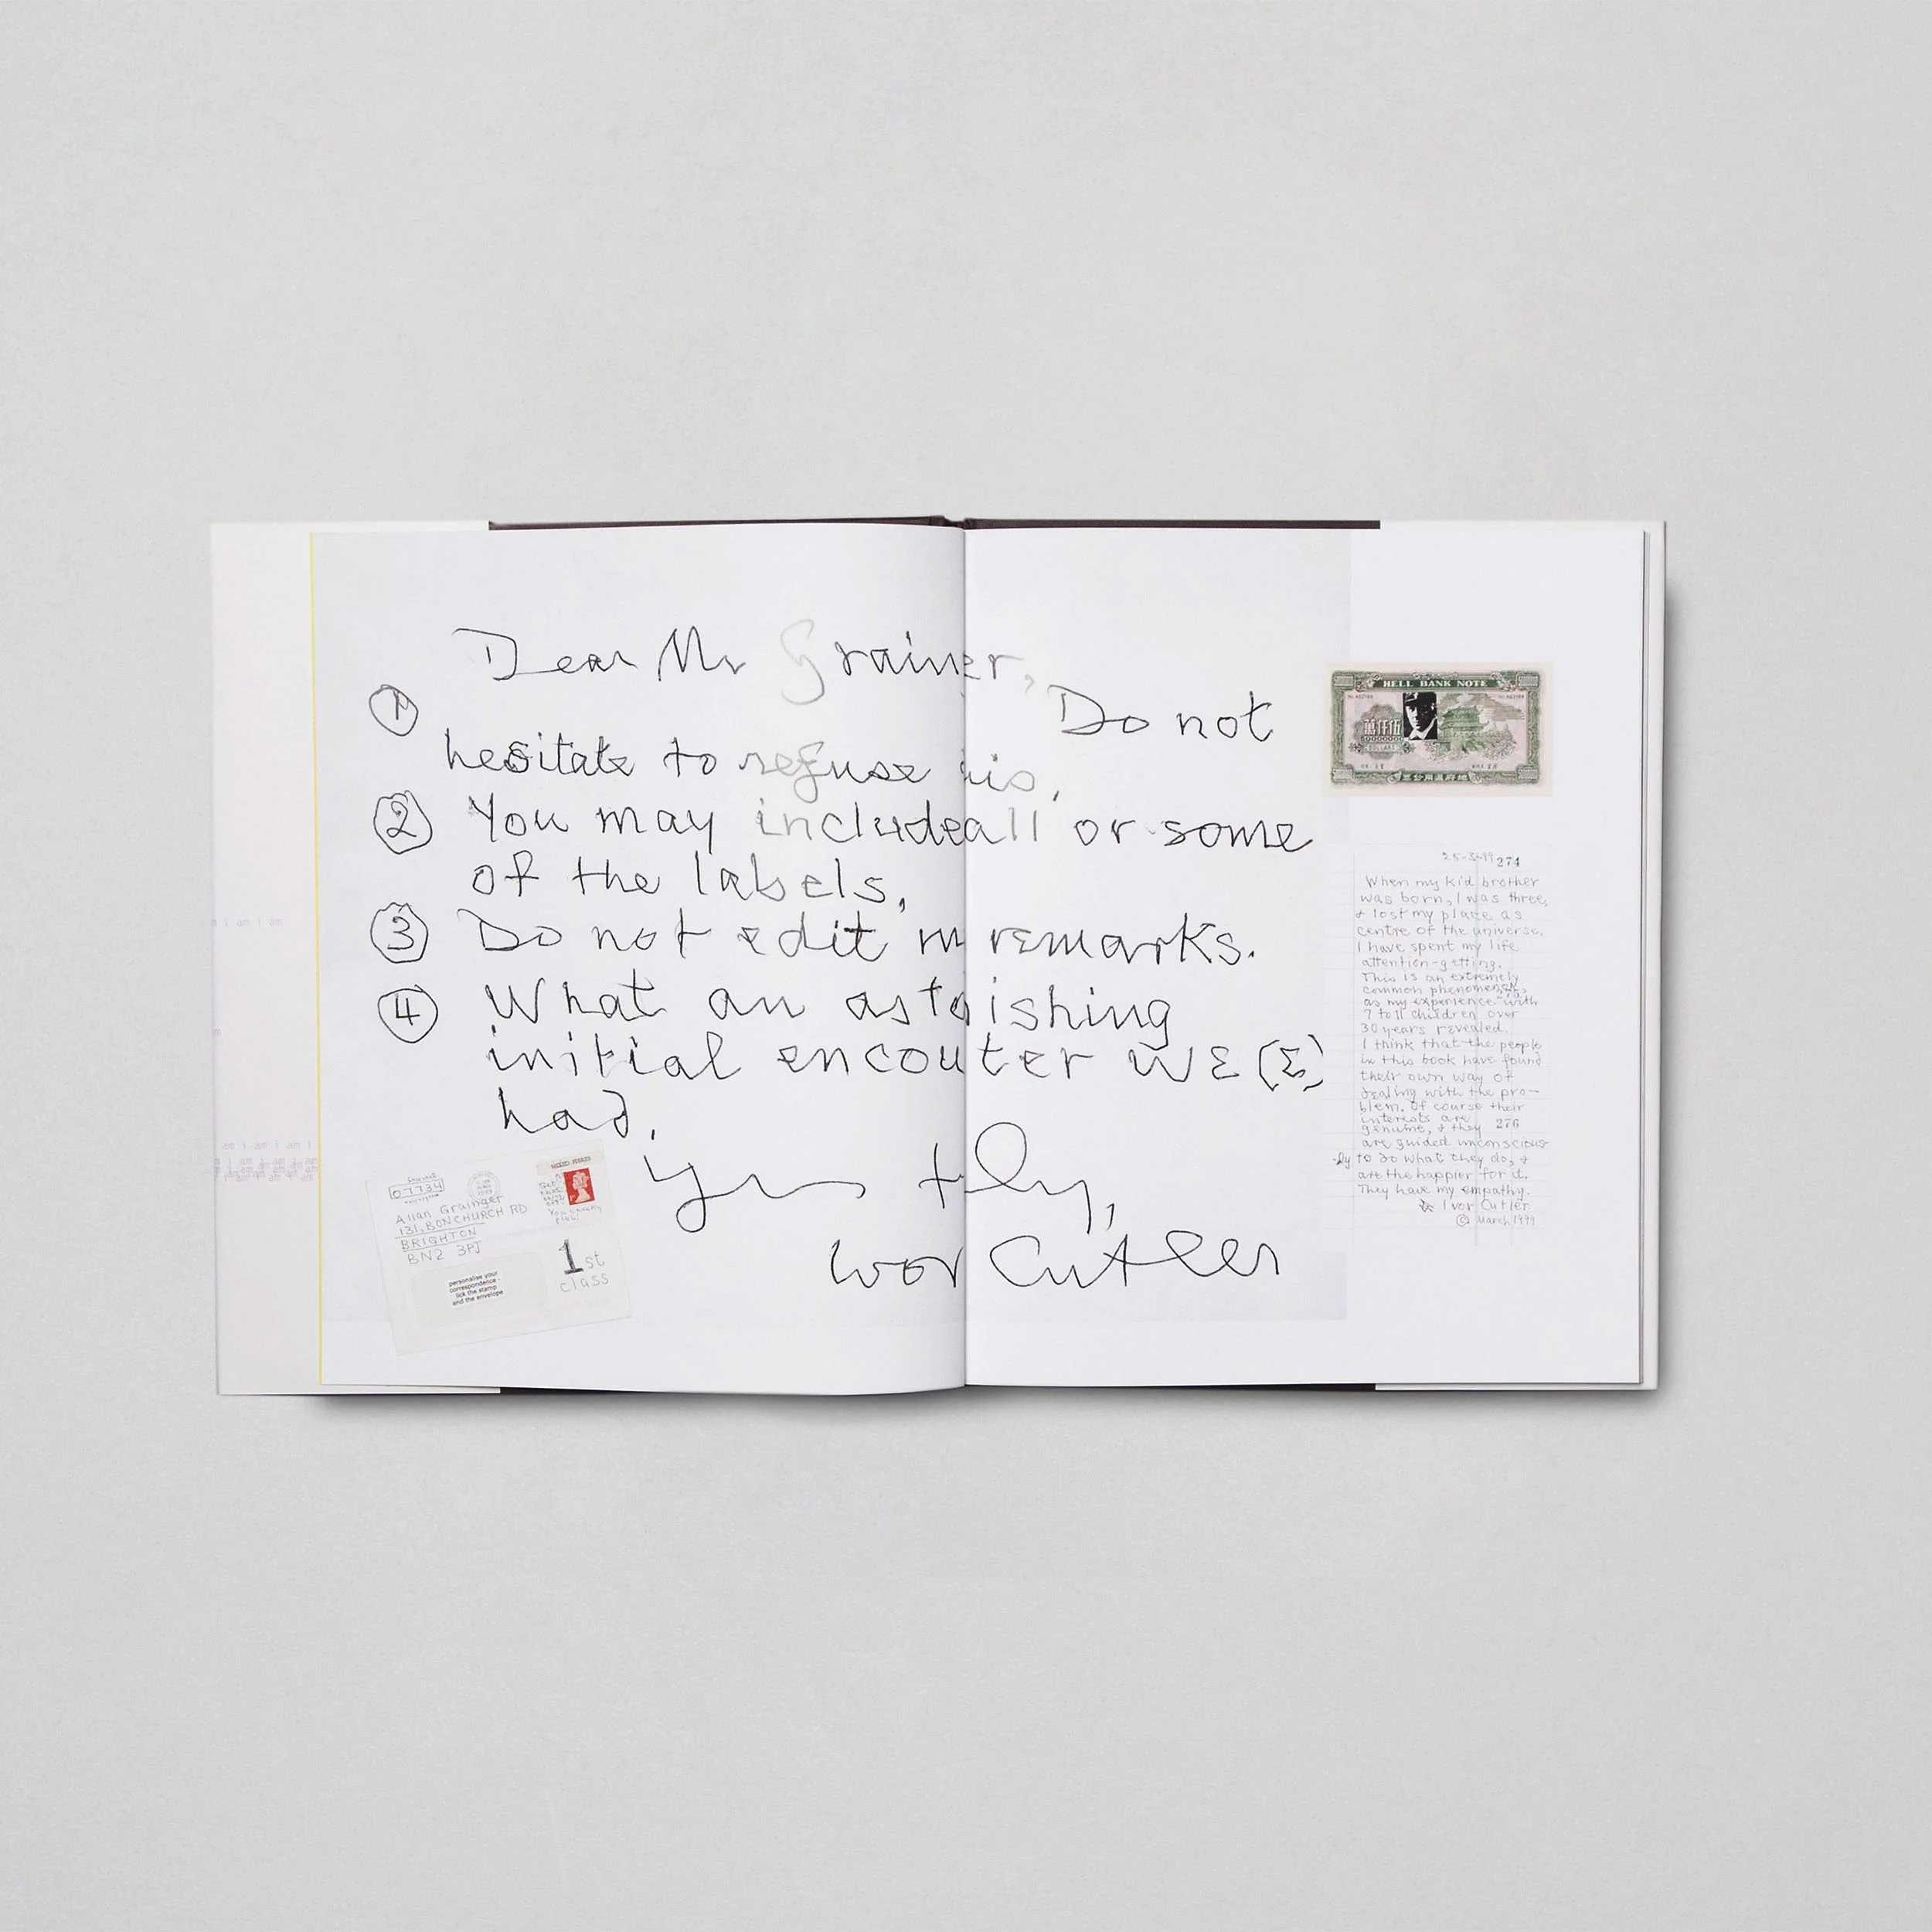 Dear Mr Grainer,
① Do not
hesitate to refuse his,
② You may include all or some
of the labels,
③ Do not edit m remarks.
④ What an asto ishing
initial encou ter we (Σ)
had,
Yrs t ly,
Ivor Cutler
07734
Allan Grainger
131, BONCHURCH RD
BRIGHTON
BN2 3PJ
1st
class
personalise your
correspondence -
lick the stamp
and the envelope
HELL BANK NOTE
25-3-99 274
When my kid brother
was born, I was three,
+ lost my place as
centre of the universe.
I have spent my life
attention-getting.
This is an extremely
common phenomenon,
as my experience with
7 to 11 children over
30 years revealed.
I think that the people
in this book have found
their own way of
dealing with the pro-
blem. Of course their
interests are
genuine, + they 276
are guided unconscious-
-ly to do what they do, +
are the happier for it.
They have my empathy.
Ivor Cutler
© March 1999
i am i am
am i am i am i